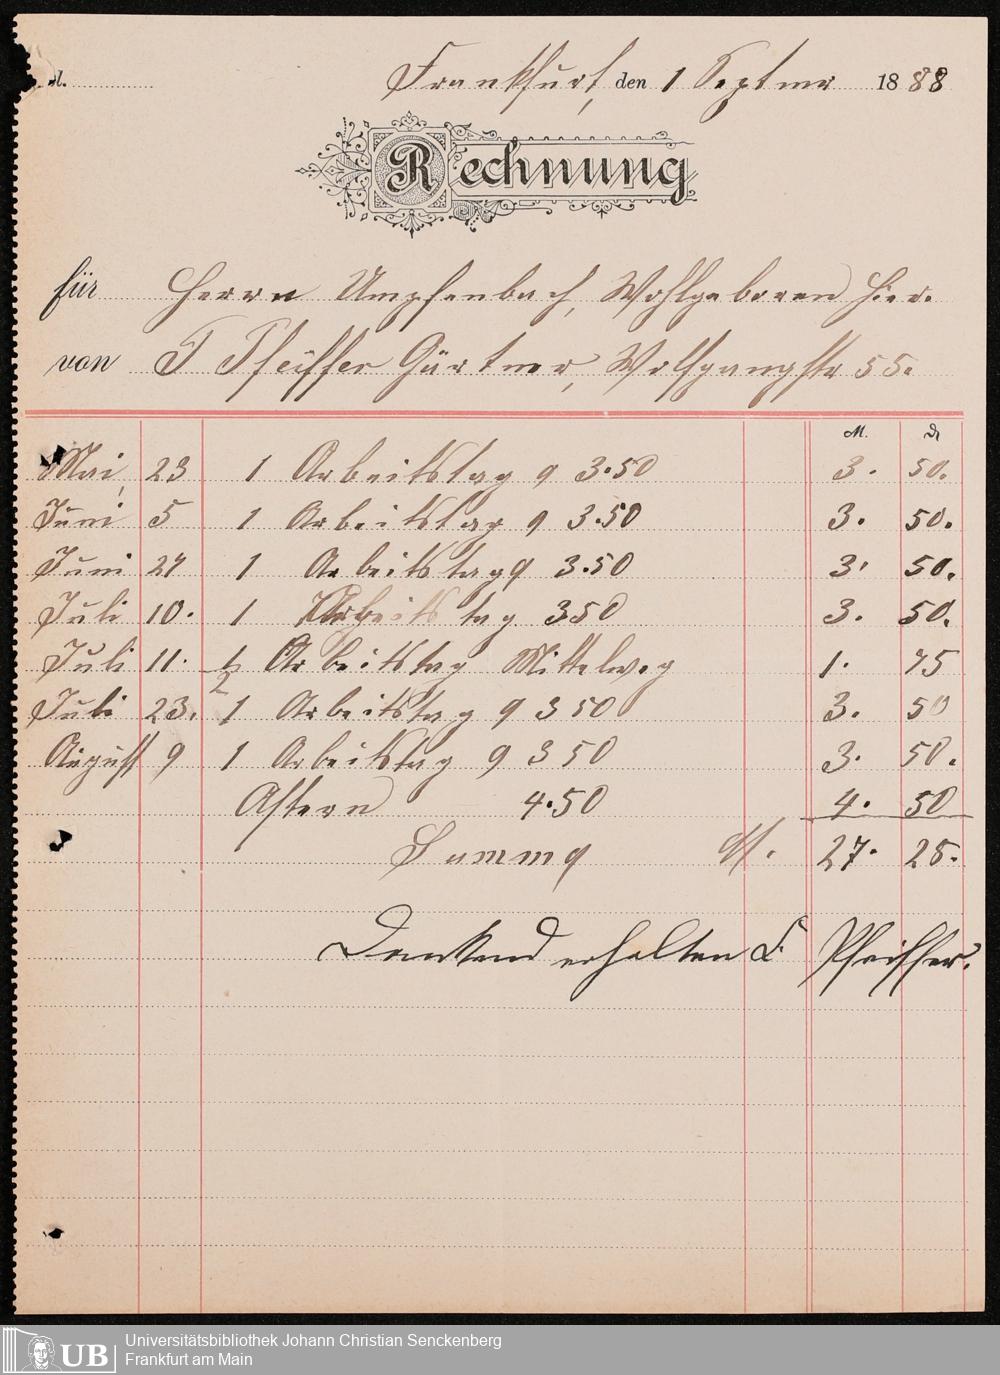 Frankfurt, den 1 Septmr 1888
Rechnung
für Herrn Umpfenbach, Wohlgeboren Hier.
von F Pfeiffer Gärtner, Wolfgangstr 55.
M. ₰
Mai, 23 1 Arbeitstag a 3.50 3. 50.
Juni 5 1 Arbeitstag a 3.50 3. 50.
Juni 27 1 Arbeitstag a 3.50 3. 50.
Juli 10. 1 Arbeitstag 350 3. 50.
Juli 11. ½ Arbeitstag Mittelweg 1. 75
Juli 23. 1 Arbeitstag a 3 50 3. 50
August 9 1 Arbeitstag a 3 50 3. 50.
Astern 4.50 4. 50
Summa M. 27. 25.
Dankend erhalten F. Pfeiffer.
UB
Universitätsbibliothek Johann Christian Senckenberg
Frankfurt am Main